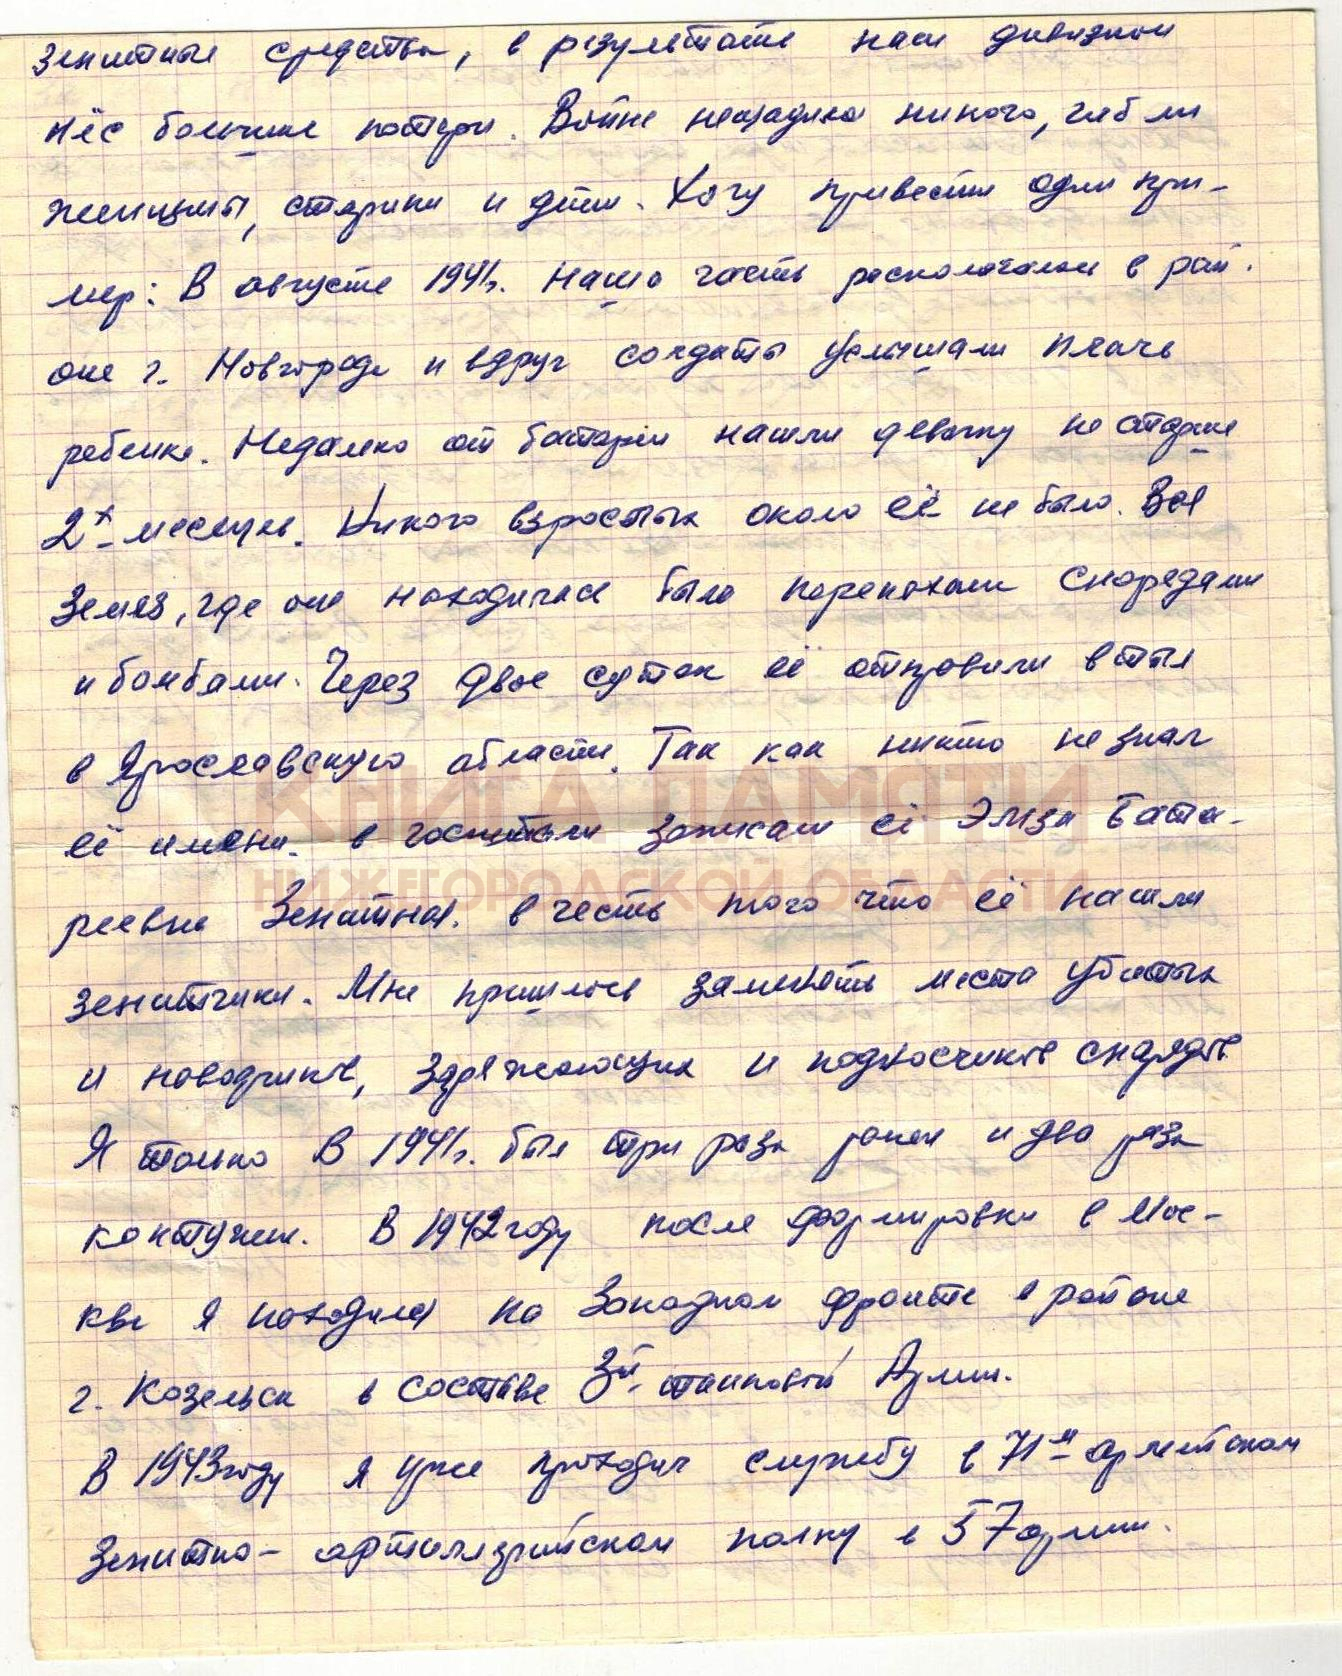 зенитные средства, в результате наш дивизион
нёс большие потери. Война нещадила никого, гибли
женщины, старики и дети. Хочу привести один при-
мер: В августе 1941г. Наша часть располагалась в рай-
оне г. Новгорода и вдруг солдаты услышали плачь
ребенка. Недалеко от батареи нашли девочку не старше
2х месяцев. Никого взрослых около её не было. Вся
Земля, где она находилась была перепахана снарядами
и бомбами. Через двое суток её отправили в тыл
в Ярославскую область. Так как никто не знал
её имени. в госпитали записали её Элиза Бата-
реевна Зенитная. в честь того что её нашли
зенитчики. Мне пришлось заменять места убитых
и наводчиков, заряжающих и подносчиков снарядов
Я только в 1941г. был три раза ранен и два раза
контужен. В 1942 году после формировки в Мос-
кве я находился на Западном фронте в районе
г. Козельска в составе 3й танковой Армии.
В 1943 году я уже проходил службу в 71м армейском
Зенитно-артиллерийском полку в 57 армии.
КНИГА ПАМЯТИ
НИЖЕГОРОДСКОЙ ОБЛАСТИ